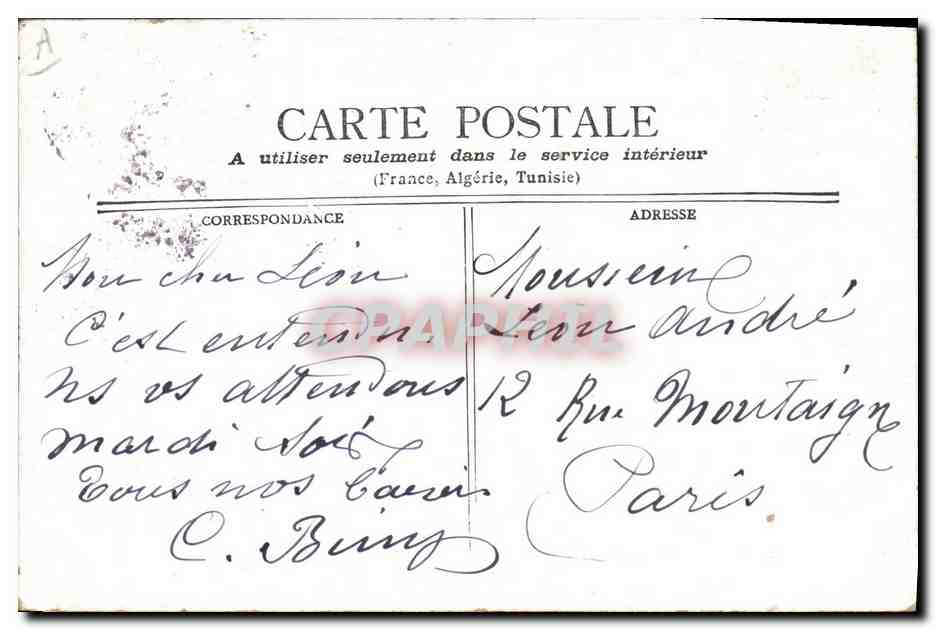 A
CARTE POSTALE
A utiliser seulement dans le service intérieur
(France, Algérie, Tunisie)
CORRESPONDANCE
Mon cher Léon
C'est entendu.
ns vs attendons
mardi soir
Tous nos baisers
C.
ADRESSE
Monsieur
Léon André
12 Rue Montaigne
Paris.
CPAPHIL